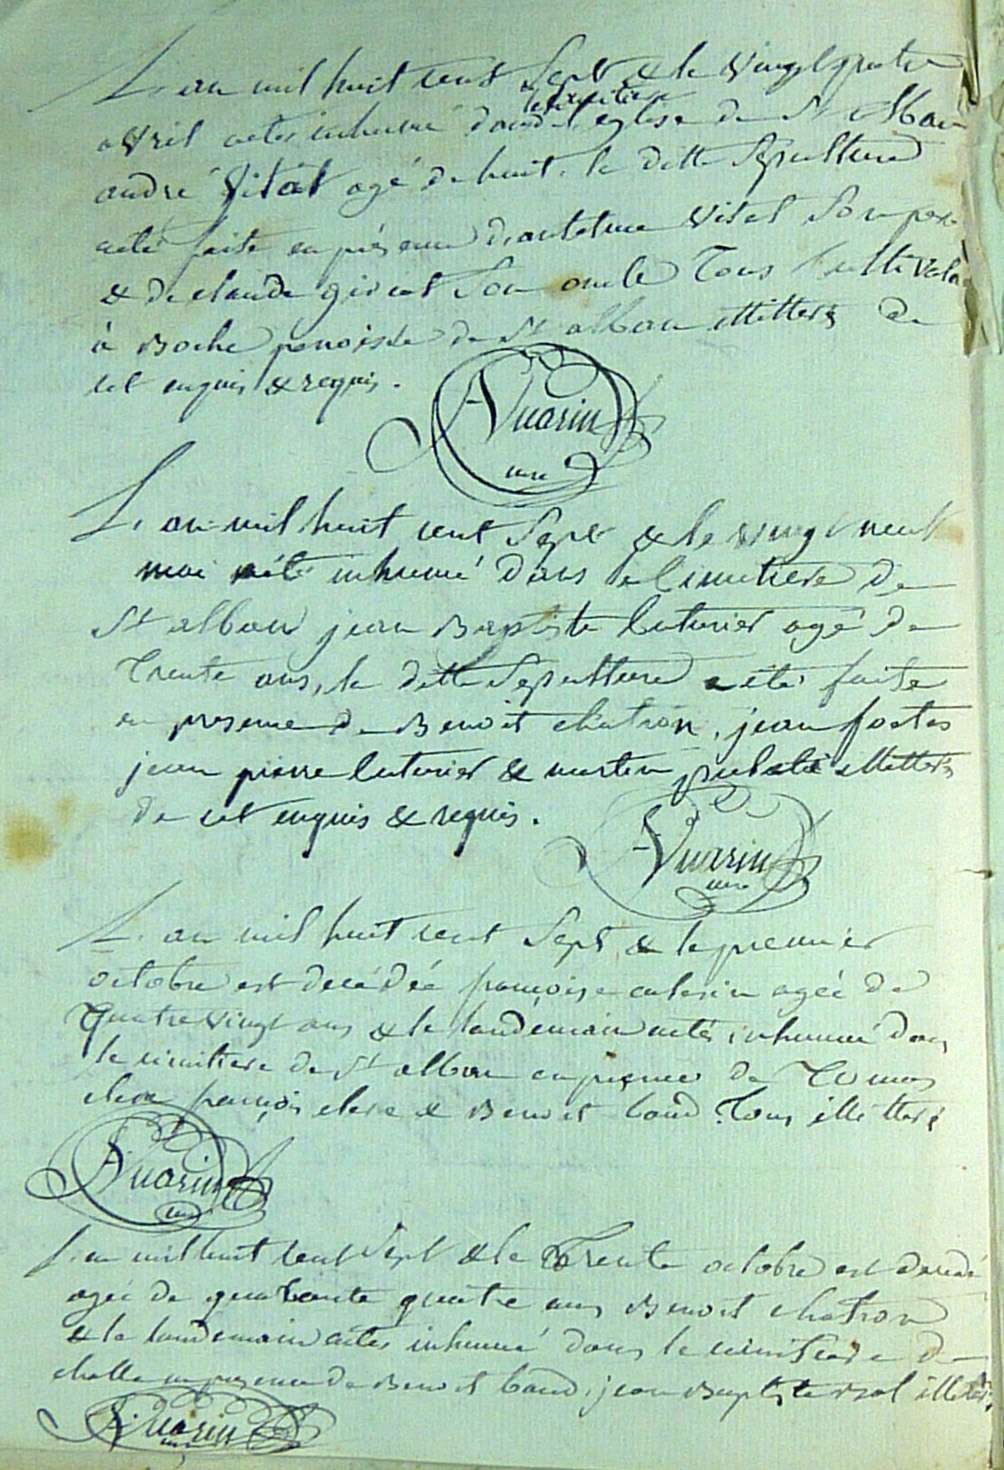 L'an mil huit cent Sept & le vingt quatre
avril aetés inhumé dans le cimetiere de l'eglise de St alban
andré vital agé de huit, la ditte Sepulture
aeté faite en présence d'antoine vital Son pere
& de claude giriat Son oncle Tous Cultivateurs
à Boche paroisse de St alban illitterés de
cet enquis & requis.
A Vuarin
curé
L'an mil huit cent Sept & le vingt neuf
mai aété inhumé dans le Cimetiere de
St alban jean Baptiste Couturier agé de
Trente ans, la ditte Sepulture aété faite
en presence de Benoit chatron, jean
jean pierre Couturier & martin illitterés
de cet enquis & requis.
A Vuarin
curé
L'an mil huit cent Sept & le premier
octobre est decédée françoise agée de
Quatre vingt ans & le landemain aetés inhumé dans
le cimitiere de St alban en presence de Tomas
clere françois clere & Benoit Caud Tous illitterés
A Vuarin
curé
L'an mil huit cent Sept & le Trente octobre est decedé
agée de quarante quatre ans Benoit chatron
& le landemain aetés inhumé dans le cimitiere de
chelle en presence de Benoit Caud, jean Baptiste illiterés.
A Vuarin
curé